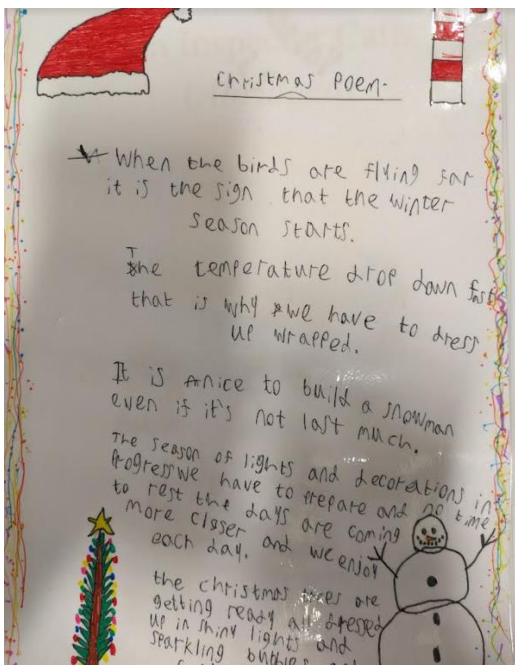 Christmas Poem.
When the birds are flying far
it is the sign that the winter
season starts.
The temperature drop down fast
that is why we have to dress
up wrapped.
It is a nice to build a snowman
even if it's not last much.
The season of lights and decorations in
Progress we have to Prepare and no time
to rest the days are coming
more closer and we enjoy
each day.
the christmas trees are
getting ready all dressed
up in shiny lights and
sparkling